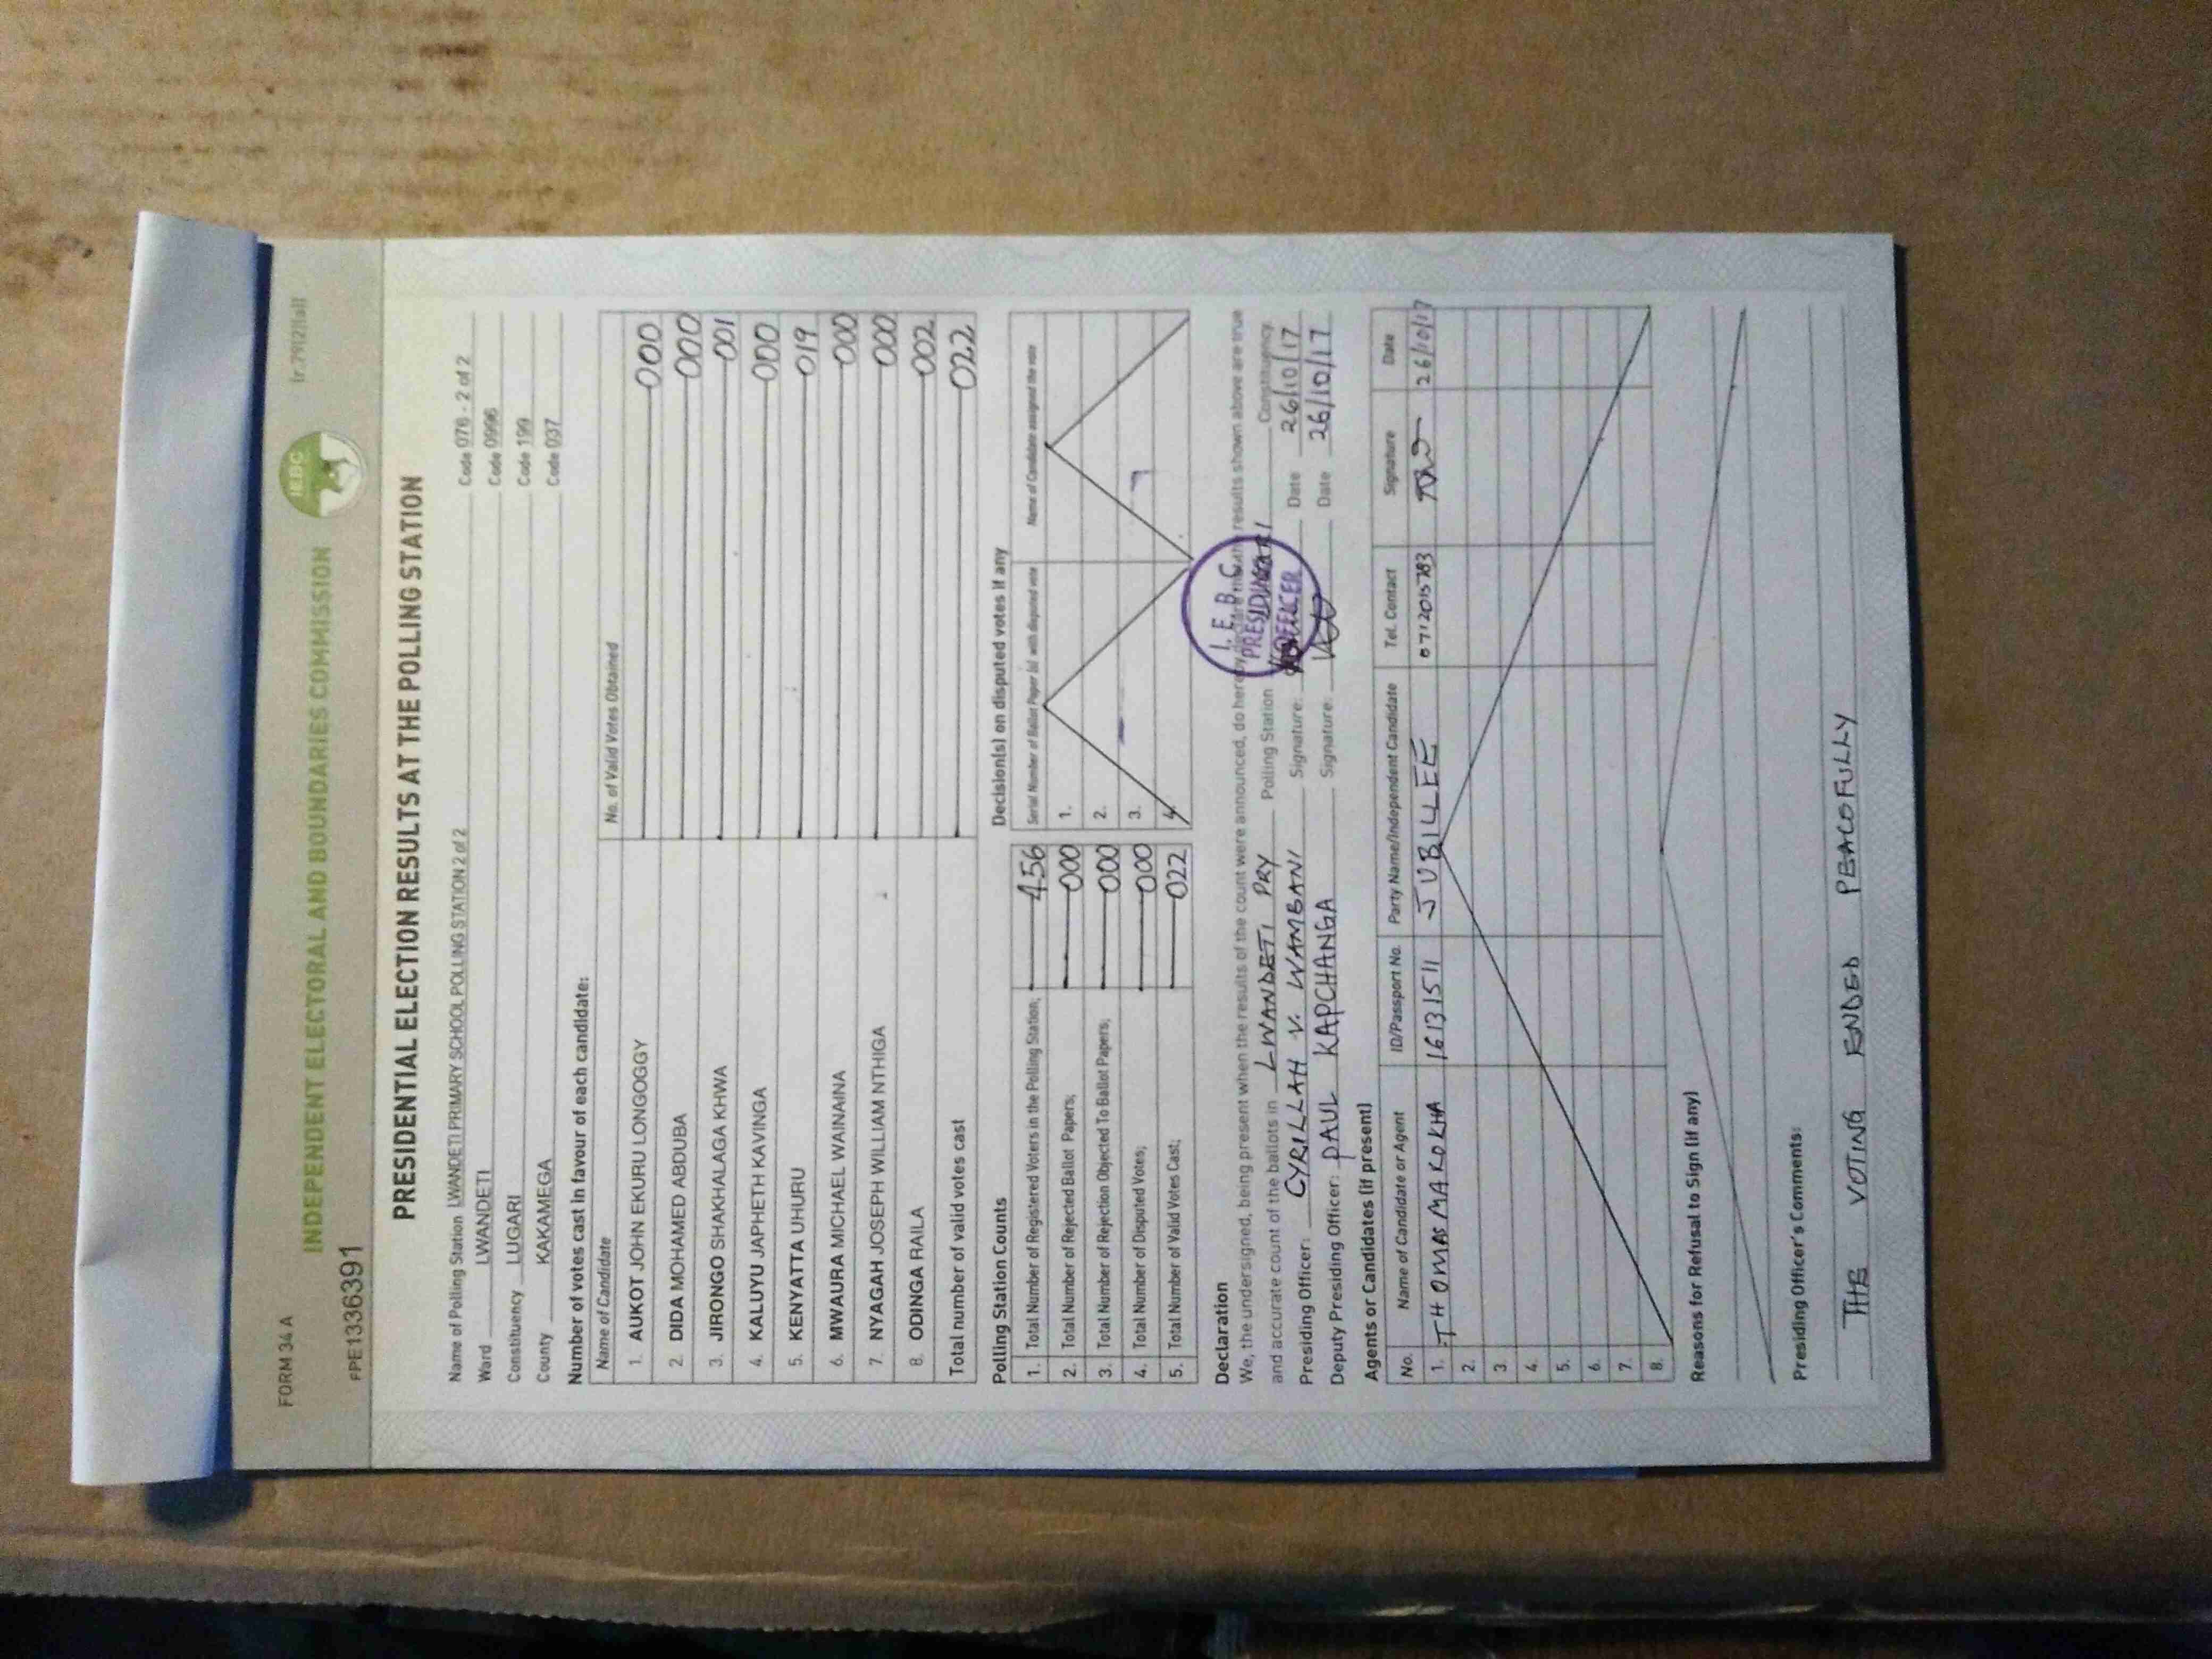 FORM 34 A
INDEPENDENT ELECTORAL AND BOUNDARIES COMMISSION
IEBC
FPE1336391
PRESIDENTIAL ELECTION RESULTS AT THE POLLING STATION
Name of Polling Station LWANDETI PRIMARY SCHOOL POLLING STATION 2 of 2 Code 076 - 2 of 2
Ward LWANDETI Code 0996
Constituency LUGARI Code 199
County KAKAMEGA Code 037
Number of votes cast in favour of each candidate:
Name of Candidate No. of Valid Votes Obtained
1. AUKOT JOHN EKURU LONGOGGY 000
2. DIDA MOHAMED ABDUBA 000
3. JIRONGO SHAKHALAGA KHWA 001
4. KALUYU JAPHETH KAVINGA 000
5. KENYATTA UHURU 019
6. MWAURA MICHAEL WAINAINA 000
7. NYAGAH JOSEPH WILLIAM NTHIGA 000
8. ODINGA RAILA 002
Total number of valid votes cast 022
Polling Station Counts Decision(s) on disputed votes if any
Serial Number of Ballot Paper (s) with disputed vote Name of Candidate assigned the vote
1. Total Number of Registered Voters in the Polling Station; 456 1.
2. Total Number of Rejected Ballot Papers; 000 2.
3. Total Number of Rejection Objected To Ballot Papers; 000 3.
4. Total Number of Disputed Votes; 000 4.
5. Total Number of Valid Votes Cast; 022
Declaration
We, the undersigned, being present when the results of the count were announced, do hereby declare that the results shown above are true
and accurate count of the ballots in LWANDETI PRY Polling Station Constituency.
I.E.B.C
PRESIDING
OFFICER
Presiding Officer: CYRILLAH V. WAMBANI Signature: Date 26/10/17
Deputy Presiding Officer: PAUL KAPCHANGA Signature: Date 26/10/17
Agents or Candidates (if present)
No. Name of Candidate or Agent ID/Passport No. Party Name/Independent Candidate Tel. Contact Signature Date
1. THOMAS MAKOKHA 16131511 JUBILEE 0712015783 26/10/17
2.
3.
4.
5.
6.
7.
8.
Reasons for Refusal to Sign (if any)
Presiding Officer's Comments:
THE VOTING ENDED PEACOFULLY